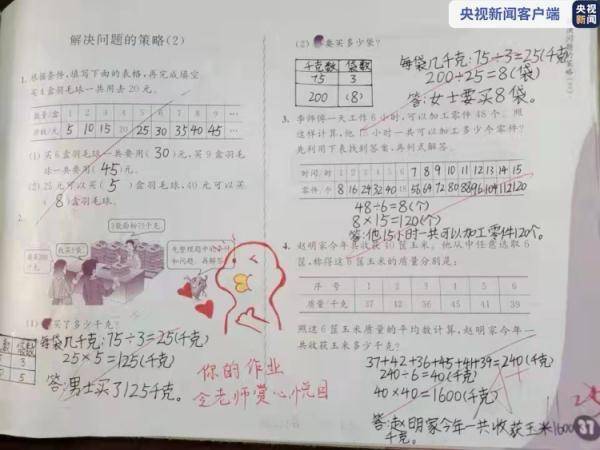 央视新闻客户端
央视新闻
解决问题的策略(2)
1. 根据条件,填写下面的表格,再完成填空。
买4盒羽毛球一共用去20元。
数量/盒 1 2 3 4 5 6 7 8 9 …
总价/元 5 10 15 20 25 30 35 40 45 …
(1) 买6盒羽毛球一共要用(30)元,买9盒羽毛
球一共要用(45)元。
(2) 25元可以买(5)盒羽毛球,40元可以买
(8)盒羽毛球。
2.
3袋面粉75千克。
我买5袋。
先整理题中的条件
和问题,再解答。
(1) 买了多少千克?
每袋几千克:75÷3=25(千克)
25×5=125(千克)
答:男士买了125千克。
袋数
3
5
你的作业
令老师赏心悦目
(2) 要买多少袋?
千克数 袋数
75 3
200 (8)
每袋几千克:75÷3=25(千克)
200÷25=8(袋)
答:女士要买8袋。
3. 李师傅一天工作6小时,可以加工零件48个。照
这样计算,他15小时一共可以加工多少个零件?
先利用下表找到答案,再列式解答。
时间/时 1 2 3 4 5 6 7 8 9 10 11 12 13 14 15
零件/个 8 16 24 32 40 48 56 64 72 80 88 96 104 112 120
48÷6=8(个)
8×15=120(个)
答:他15小时一共可以加工零件120个。
4. 赵明家今年共收获40筐玉米。他从中任意选取6
筐,称得这6筐玉米的质量分别是:
序号 1 2 3 4 5 6
质量/千克 37 42 36 45 41 39
照这6筐玉米质量的平均数计算,赵明家今年一
共收获玉米多少千克?
37+42+36+45+41+39=240(千克)
240÷6=40(千克)
40×40=1600(千克)
A+
答:赵明家今年一共收获玉米1600
千克。
37